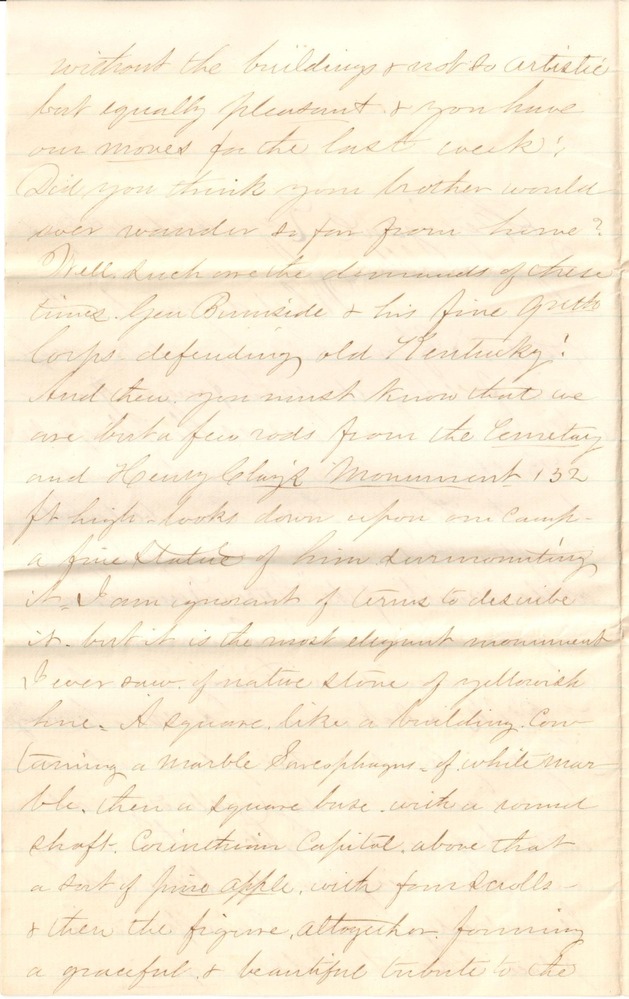 without the buildings & not so artistic
but equally pleasant. & you have
our moves for the last week!,
Did you think your brother would
ever wander so far from home?
Well. such are the demands of these
times. Gen Burnside & his fine 9th
Corps. defending old Kentucky!
And then. you must know that we
are but a few rods from the Cemetery
and Henry Clay's Monument 132
ft high - looks down upon our Camp -
a fine Statue of him surmounting
it = I am ignorant of terms to describe
it. but it is the most elegant monument
I ever saw. of native stone of yellowish
hue. A square. like a building. Con-
taining a marble Sarcophagus - of white mar-
ble. then a square base. with a round
shaft. Corinthian Capital. above that
a sort of pine apple, with four scrolls -
& then the figure, altogether. forming
a graceful. & beautiful tribute to the